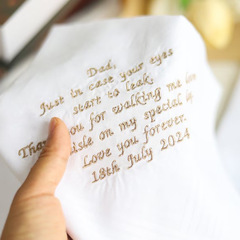 Dad,
Just in case your eyes
start to leak,
you for walking me
Tha isle on my special
Love you forever
18th July 2024